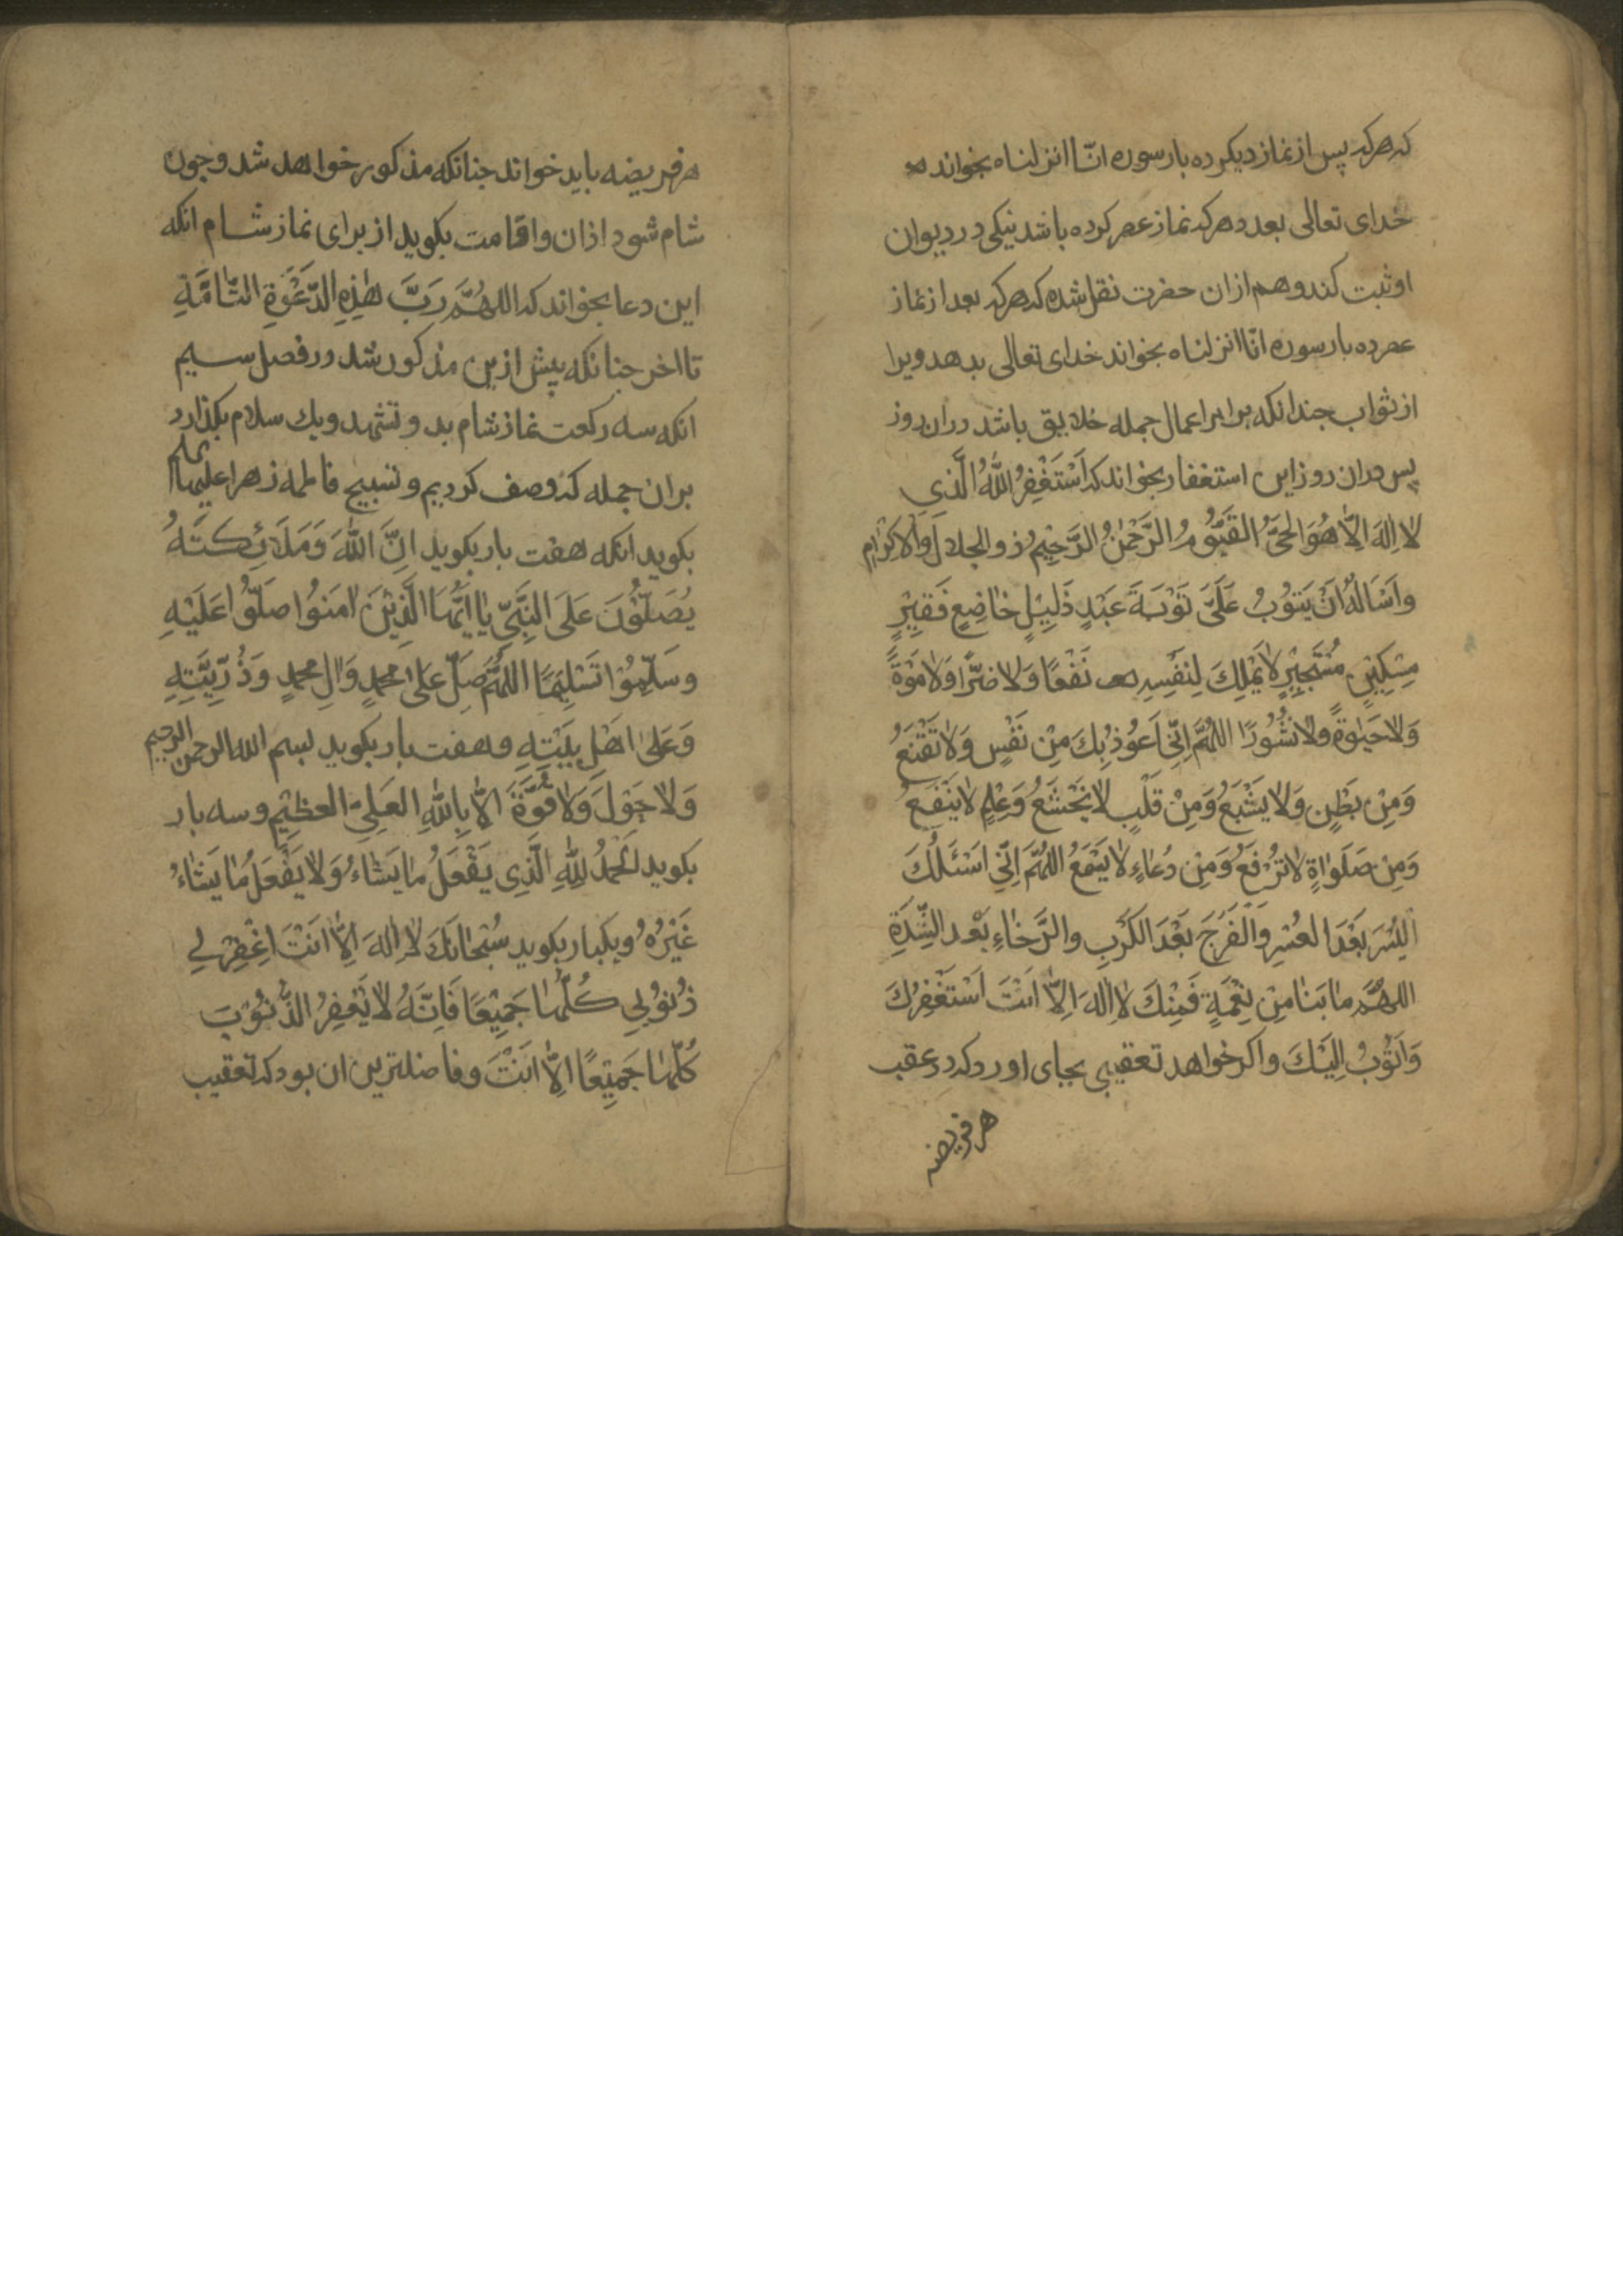 که هرکه پس از نماز دیکر ده بار سوره انّا انزلناه بخواند
خدای تعالی بعدد هرکه نماز عصر کرده باشد نیکی در دیوان
او ثبت کند و هم ازان حضرت نقل شده که هرکه بعد از نماز
عصر ده بار سوره انّا انزلناه بخواند خدای تعالی بدهد ویرا
از ثواب جندانکه برابر اعمال جمله خلایق باشد دران روز
پس دران روز این استغفار بخواند که اَسْتَغْفِرُ اللّٰهَ الَّذي
لاٰ اِلٰهَ اِلّاٰ هُوَ الحَيُّ القَيُّومُ الرَّحْمٰنُ الرَّحِيْمُ ذو الجلال وَالاكْرٰامِ
واَسَالُهُ اَنْ يَتوُبُ عَلَيَّ تَوْبَةَ عَبْدٍ ذَلِيْلٍ خٰاضِعٍ فَقِيْرٍ
مِسْكِيْنٍ مُسْتَجِيْرٍ لاٰ يَمْلِكَ لِنَفْسِهِ نَفْعًا وَلاٰ ضَرًّا وَلاٰ مَوْتًا
وَلاٰ حَيٰوةً ولاٰ نُشُورًا اللهُمَّ اِنّي اَعُوذ بِكَ مِنْ نَفْسٍ وَلاٰ تَقْنَعُ
وَمِنْ بَطْنٍ وَلاٰ يَشْبَعُ وَمِنْ قَلْبٍ لاٰ يَخْشَعُ وَعِلْمٍ لاٰ يَنْفَعُ
وَمِن صَلَوٰاةٍ لاٰ تُرْفَعُ وَمِنْ دُعٰاءٍ لاٰ يَسْمَعُ اللهُمَّ اِنّي اَسْئَلُكَ
اليُسْرَ بَعْدَ العُسْرِ وَالْفَرَجَ بَعْدَ الكَرْبِ والرَّخٰاءِ بَعْد الشِّدَةِ
اللهُمَّ مٰا بَنٰا مِنْ نِعْمَةٍ فَمِنْكَ لاٰ اِلٰهَ اِلّاٰ اَنْتَ اَسْتَغْفِرُكَ
وَاَتُوْبُ اِلَيْكَ واکر خواهد تعقیبی بجای اورد که در عقب
هر فریضه
هر فریضه باید خواند جنانکه مذکور خواهد شد و جون
شام شود اذان و اقامت بکوید از برای نماز شام انکه
این دعا بخواند که اللهُمَّ رَبَّ هٰذِهِ الدَّعْوَةِ التّٰامَّةِ
تا اخر جنانکه پیش ازین مذکور شد در فصل سیم
انکه سه رکعت نماز شام بدو تشهد و یك سلام بکذارد
بران جمله که وصف کردیم و تسبیح فاطمه زهرا علیها السلم
بکوید انکه هفت بار بکوید اِنَّ اللّٰهَ وَمَلَائِكَتَهُ
يُصَلُّوْنَ عَلَى النَّبِيّ يٰا اَيُّهَا الَّذِيْنَ اٰمَنُوا صَلُّوا عَلَيْهِ
وسَلِّمُوْا تَسْلِيْمًا اللهُمَّ صَلِّ عَلىٰ محمدٍ وَاٰلِ محمدٍ وَذُرّيَّتِهِ
وَعَلىٰ اَهْلِ بَيْتِهِ وهفت بار بکوید بسم الله الرحمن الرحيم
وَلاٰ حَوْلَ وَلاٰ قُوَّةَ اِلّاٰ بِاللّٰهِ العَلِيّ العظيْمِ وسه بار
بکوید اَلحَمْدُ لِلّٰهِ الَّذِي يَفْعَلُ مٰا يَشٰاءُ وَلاٰ يَفْعَلُ مٰا يَشٰاءُ
غَيْرُهُ ویکبار بکوید سُبْحٰانَكَ لاٰ اِلٰهَ اِلّاٰ اَنْتَ اغْفِرْ لي
ذُنوُبي كُلَّهٰا جَمِيْعًا فَاِنَّهُ لاٰ يَغْفِرُ الذُّنُوْبَ
كُلَّهٰا جَمِيْعًا اِلّاٰ اَنْتَ وفاضلترین ان بود که تعقیب